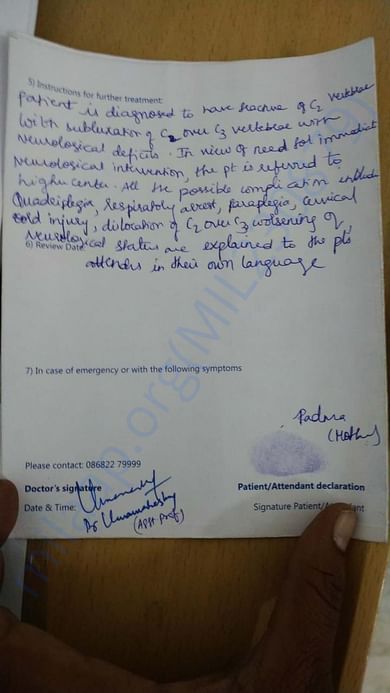 5) Instructions for further treatment:
Patient is diagnosed to have fracture of C2 vertebrae
with subluxation of C2 over C3 vertebrae with
neurological deficits. In view of need for immediate
neurological intervention, the pt is referred to
higher center. All the possible complication include
Quadriplegia, respiratory arrest, paraplegia, cervical
cord injury, dislocation of C2 over C3, worsening of
neurological status are explained to the pts
6) Review Date
attenders in their own language
7) In case of emergency or with the following symptoms
Padma
(Mother)
Please contact: 086822 79999
Doctor's signature
Patient/Attendant declaration
Date & Time:
Signature Patient/Attendant
Dr Umamaheshy
milaap.org/MILA